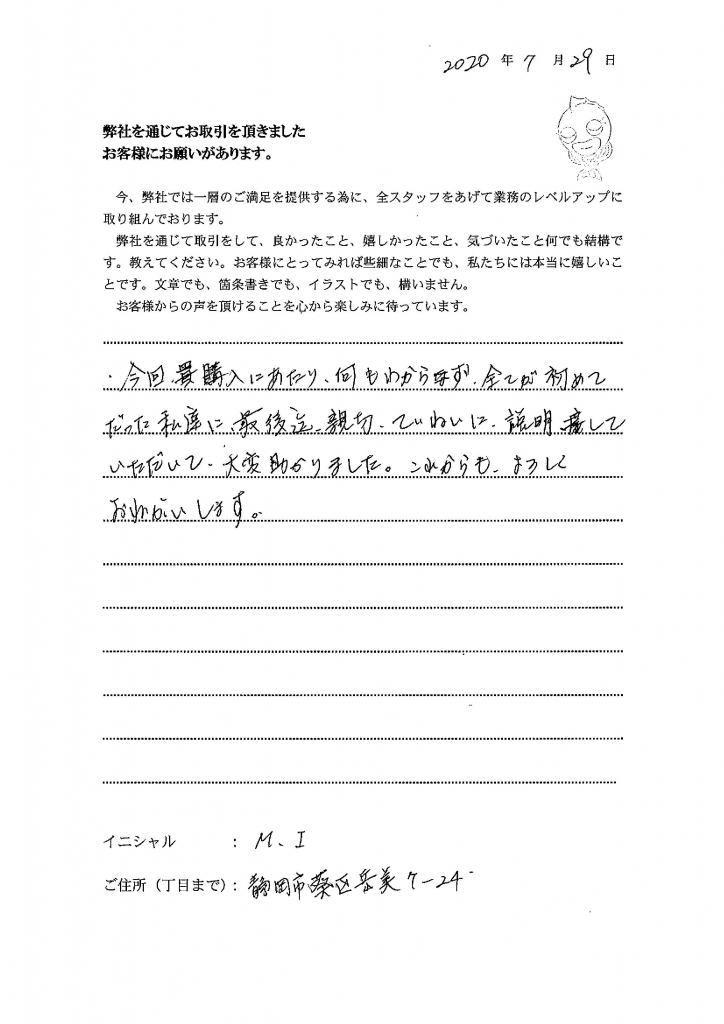 2020 年 7 月 29 日
弊社を通じてお取引を頂きました
お客様にお願いがあります。
今、弊社では一層のご満足を提供する為に、全スタッフをあげて業務のレベルアップに
取り組んでおります。
弊社を通じて取引をして、良かったこと、嬉しかったこと、気づいたこと何でも結構で
す。教えてください。お客様にとってみれば些細なことでも、私たちには本当に嬉しいこ
とです。文章でも、箇条書きでも、イラストでも、構いません。
お客様からの声を頂けることを心から楽しみに待っています。
・今回、購入にあたり、何もわからず、全てが初めて
だった私達に最後迄、親切、ていねいに、説明、接して
いただいて、大変助かりました。これからも、よろしく
おねがいします。
イニシャル : M. I
ご住所（丁目まで）: 静岡市葵区岳美 7-24